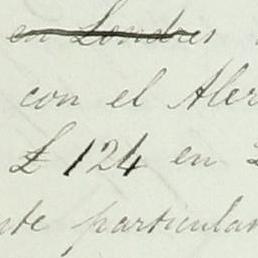 en Londres
con el Aler
£ 124 en
nte particular